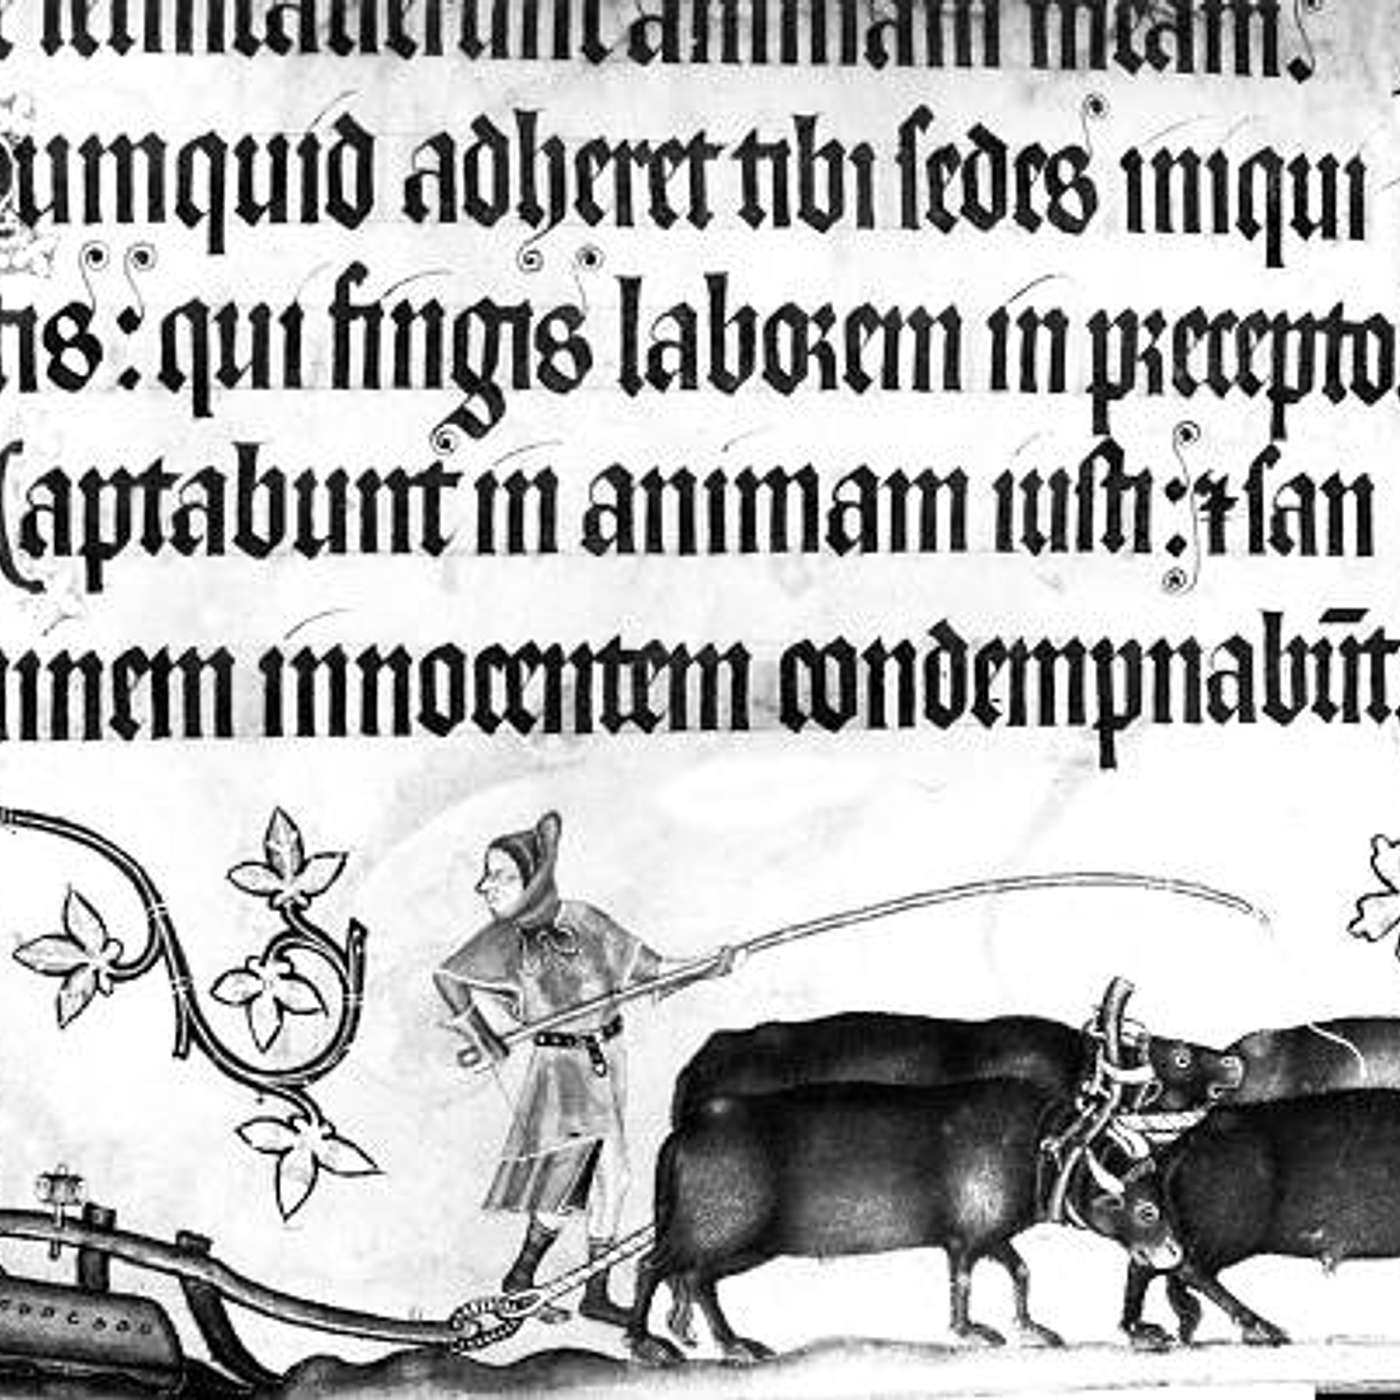 letificauerunt animam meam.
umquid adheret tibi sedes iniqui
tis: qui fingis laborem in precepto
Captabunt in animam iusti: ⁊ san
uinem innocentem condempnabūt.